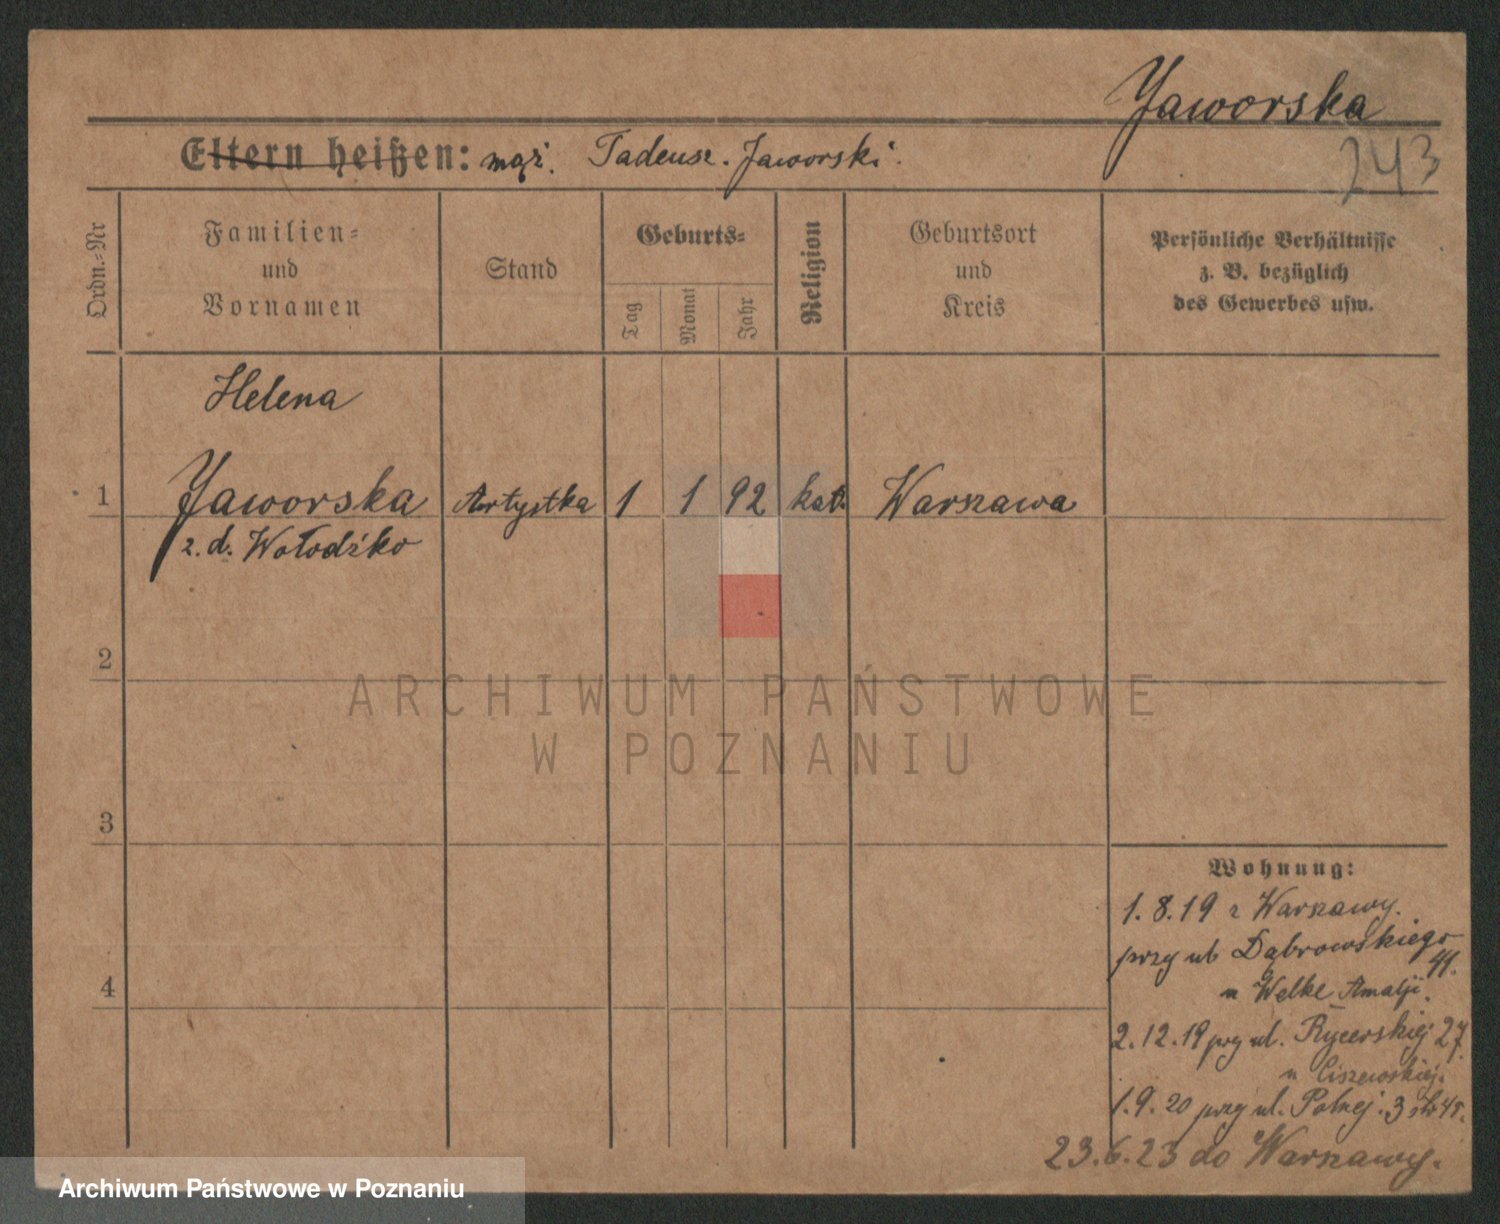 Jaworska
243
Eltern heißen: mąż. Tadeusz. Jaworski.
Ordn.-Nr
Familien-
und
Vornamen
Stand
Geburts-
Tag
Monat
Jahr
Religion
Geburtsort
und
Kreis
Persönliche Verhältnisse
z. B. bezüglich
des Gewerbes usw.
Helena
1 Jaworska Artystka 1 1 92 kat. Warszawa
z. d. Wołodźko
2
3
4
ARCHIWUM PAŃSTWOWE
W POZNANIU
Wohnung:
1.8.19 z Warszawy.
przy ul Dąbrowskiego
41.
u Welke Amalji.
2.12.19 prz ul. Rycerskiej 27
u Ciszewskiej.
1.9.20 przy ul. Polnej. 3
23.6.23 do Warszawy.
Archiwum Państwowe w Poznaniu